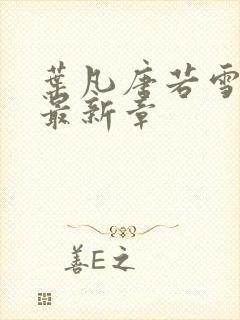 葉凡唐若雪
最新章
善E之